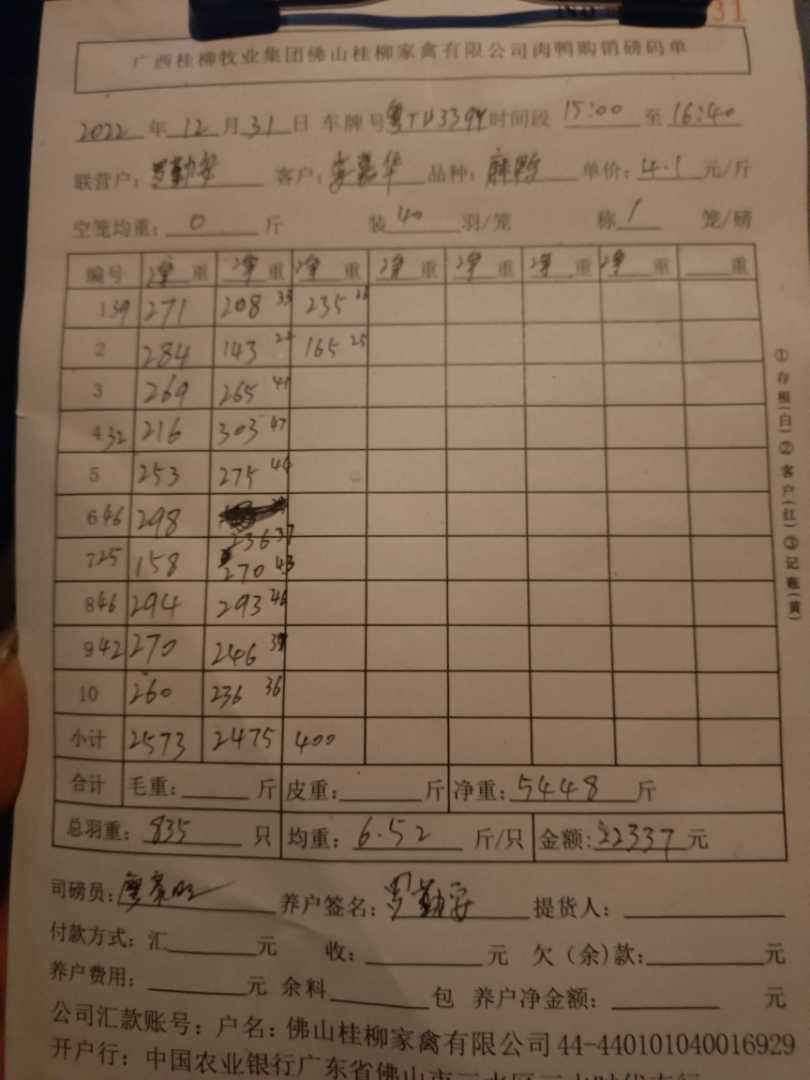 No 31
广西桂柳牧业集团佛山桂柳家禽有限公司肉鸭购销磅码单
2022 年 12 月 31 日 车牌号 时间段 15:00 至 16:40
联营户: 罗勤安 客户: 李嘉华 品种: 麻鸭 单价: 4.1 元/斤
空笼均重: 0 斤 装 40 羽/笼 称 1 笼/磅
编号 净重 净重 净重 净重 净重 净重 净重 重
1 39 271 208 33 235
2 284 143 165 25
3 269 265 41
4 32 216 303 47
5 253 275 44
6 46 298 236 37
7 25 158 270 43
8 46 294 293 46
9 42 270 246
10 260 236 36
小计 2573 2475 400
合计 毛重: 斤 皮重: 斤 净重: 5448 斤
总羽重: 835 只 均重: 6.52 斤/只 金额: 22337 元
司磅员: 养户签名: 罗勤安 提货人:
付款方式: 汇 元 收: 元 欠(余)款: 元
养户费用: 元 余料 包 养户净金额: 元
公司汇款账号: 户名: 佛山桂柳家禽有限公司 44-440101040016929
开户行: 中国农业银行广东省佛山市三水区三水时代支行
①存根(白)②客户(红)③记账(黄)